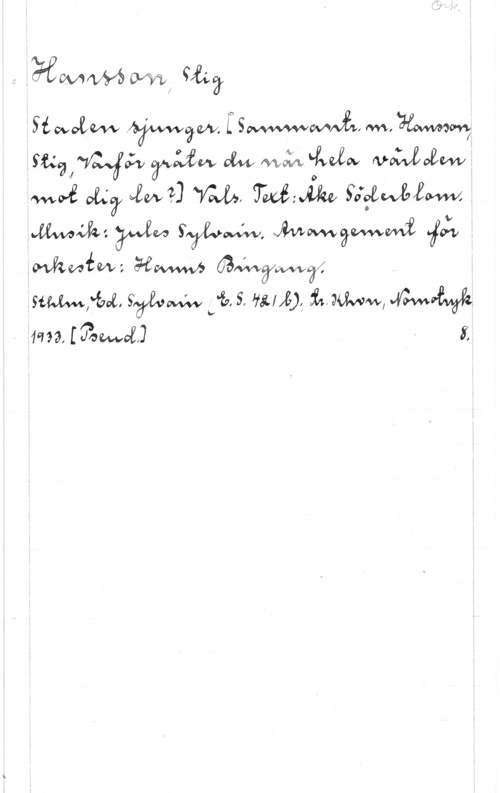 Ork.
Hansson, Stig
Staden sjunger. [Sammantr. m. Hansson,
Stig, Varför gråter du när hela världen
mot dig ler?] Vals. Text: Åke Söderblom.
Musik: Jules Sylvain. Arrangement för
orkester: Hanns Bingang.
Sthlm, Ed. Sylvain (E. S. 421 b), tr. Khvn, Nornotryk
1933. [Pseud.] 8.